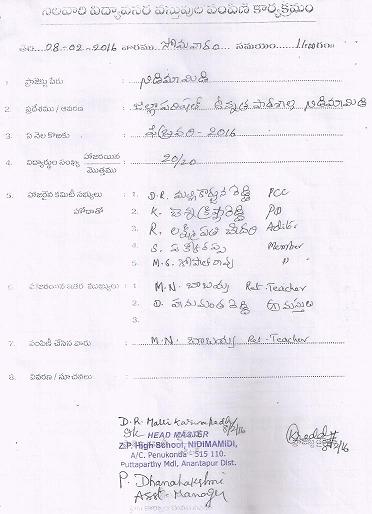 నెలవారీ విద్యావసర వస్తువుల పంపిణీ కార్యక్రమం
తేది: 08-02-2016 వారము సోమవారం సమయం 11.00గం
1. ప్రాజెక్టు పేరు : నిడిమామిడి
2. ప్రదేశము / ఆవరణ : జిల్లాపరిషత్ ఉన్నత పాఠశాల నిడిమామిడి
3. ఏ నెల కొఱకు : ఫిబ్రవరి - 2016
4. విద్యార్థుల సంఖ్య హాజరయిన మొత్తము : 20/20
5. హాజరైన కమిటీ సభ్యులు హోదాతో : 1. D.R. మల్లికార్జున రెడ్డి PCC
2. K. చెన్నక్రిష్ణారెడ్డి PD
3. R. లక్ష్మీపతి చౌదరి Aditor
4. S. Member
5. M.G. గోపాల్ రావు "
6. హాజరయిన ఇతర ముఖ్యులు : 1. M.N. బాబయ్య Ret. Teacher
2. D. హనుమంత రెడ్డి గ్రామస్తులు
3.
7. పంపిణీ చేసిన వారు : M.N. బాబయ్య Ret. Teacher
8. వివరణ / సూచనలు :
D.R. Mallikarjuna Reddy
8/2/16
HEAD MASTER
Z.P. High School, NIDIMAMIDI,
A/C. Penukonda - 515 110.
Puttaparthy Mdl, Anantapur Dist.
P. Dhanalakshmi
Asst. Manager